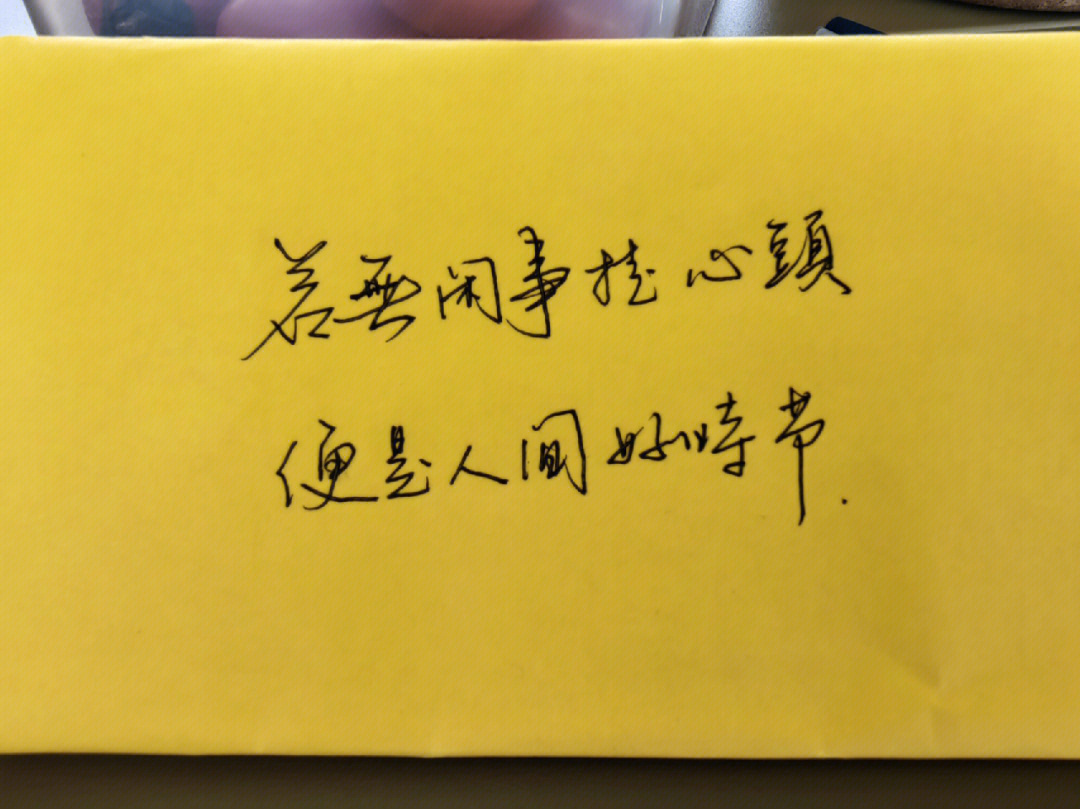 若無闲事挂心頭
便是人间好時节.